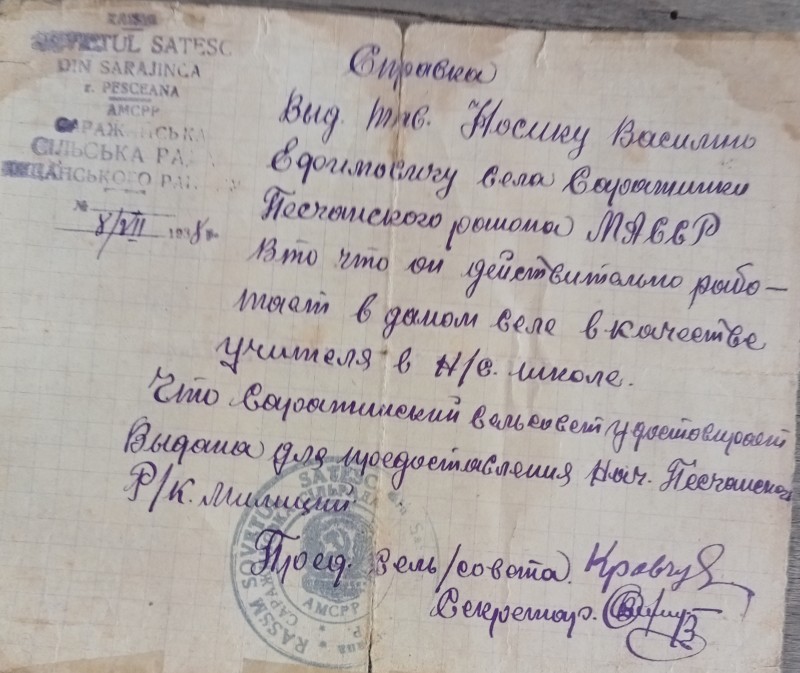 SATESC
DIN SARAJINCA
r. PESCEANA
АМСРР
САРАЖИНСЬКА
СІЛЬСЬКА РАДА
ПІЩАНСЬКОГО
№
8/VII 1938 р.
Справка
Выд. тов. Носику Василию
Ефимовичу села Саражинки
Песчанского района МАССР
В то что он действительно рабо-
тает в даном селе в качестве
учителя в Н/С. школе.
Что Саражинский сельсовет удостовиряет
Выдана для предоставления Нач. Песчанского
Р/К. Милиции
Пред. Сель/совета. Кравчук
Секретар.
RASSM SOVETUL SATESC
АМСРР